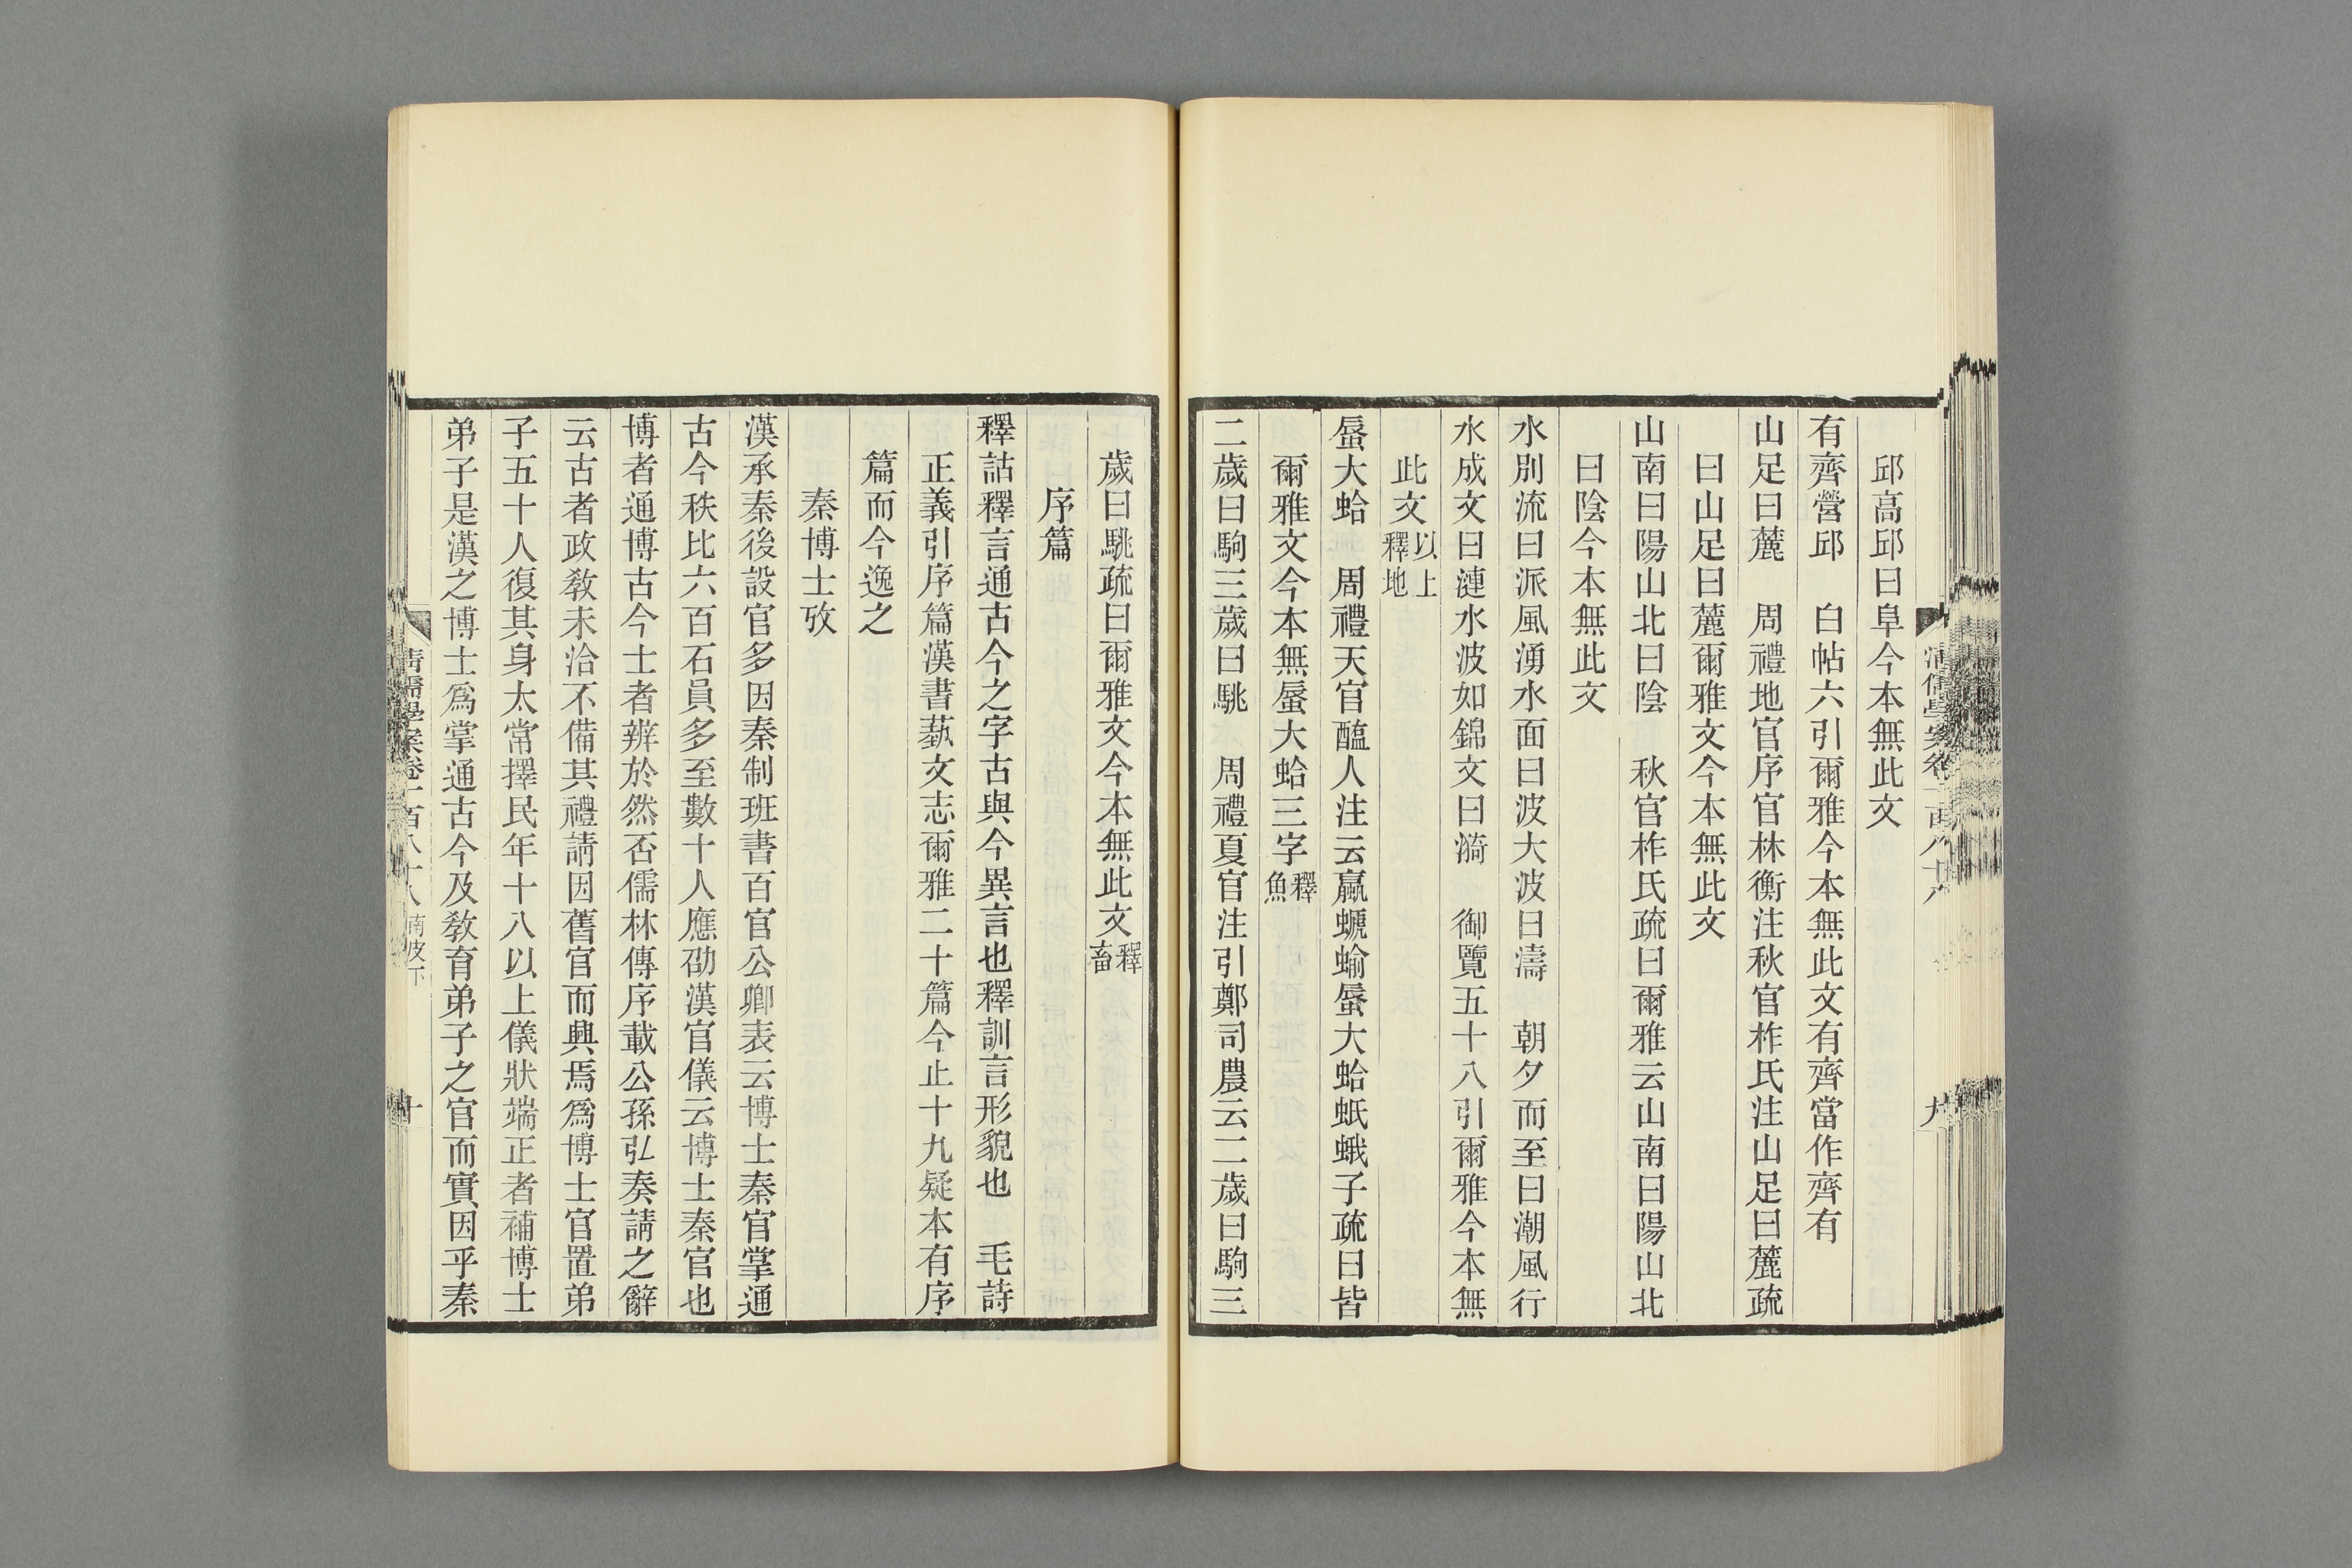 邱高邱曰阜今本無此文
有齊營邱　白帖六引爾雅今本無此文有齊當作齊有
山足曰麓　周禮地官序官林衡注秋官柞氏注山足曰麓疏
曰山足曰麓爾雅文今本無此文
山南曰陽山北曰陰　秋官柞氏疏曰爾雅云山南曰陽山北
曰陰今本無此文
水別流曰派風湧水面曰波大波曰濤　朝夕而至曰潮風行
水成文曰漣水波如錦文曰漪　御覽五十八引爾雅今本無
此文以上釋地
蜃大蛤　周禮天官醢人注云蠃螔蝓蜃大蛤蚳蛾子疏曰皆
爾雅文今本無蜃大蛤三字釋魚
二歲曰駒三歲曰駣　周禮夏官注引鄭司農云二歲曰駒三
清儒學案卷一百八十八
九
歲曰駣疏曰爾雅文今本無此文釋畜
序篇
釋詁釋言通古今之字古與今異言也釋訓言形貌也　毛詩
正義引序篇漢書蓺文志爾雅二十篇今止十九疑本有序
篇而今逸之
秦博士攷
漢承秦後設官多因秦制班書百官公卿表云博士秦官掌通
古今秩比六百石員多至數十人應劭漢官儀云博士秦官也
博者通博古今士者辨於然否儒林傳序載公孫弘奏請之辭
云古者政敎未洽不備其禮請因舊官而興焉爲博士官置弟
子五十人復其身太常擇民年十八以上儀狀端正者補博士
弟子是漢之博士爲掌通古今及敎育弟子之官而實因乎秦
清儒學案卷一百八十八　南皮下
十